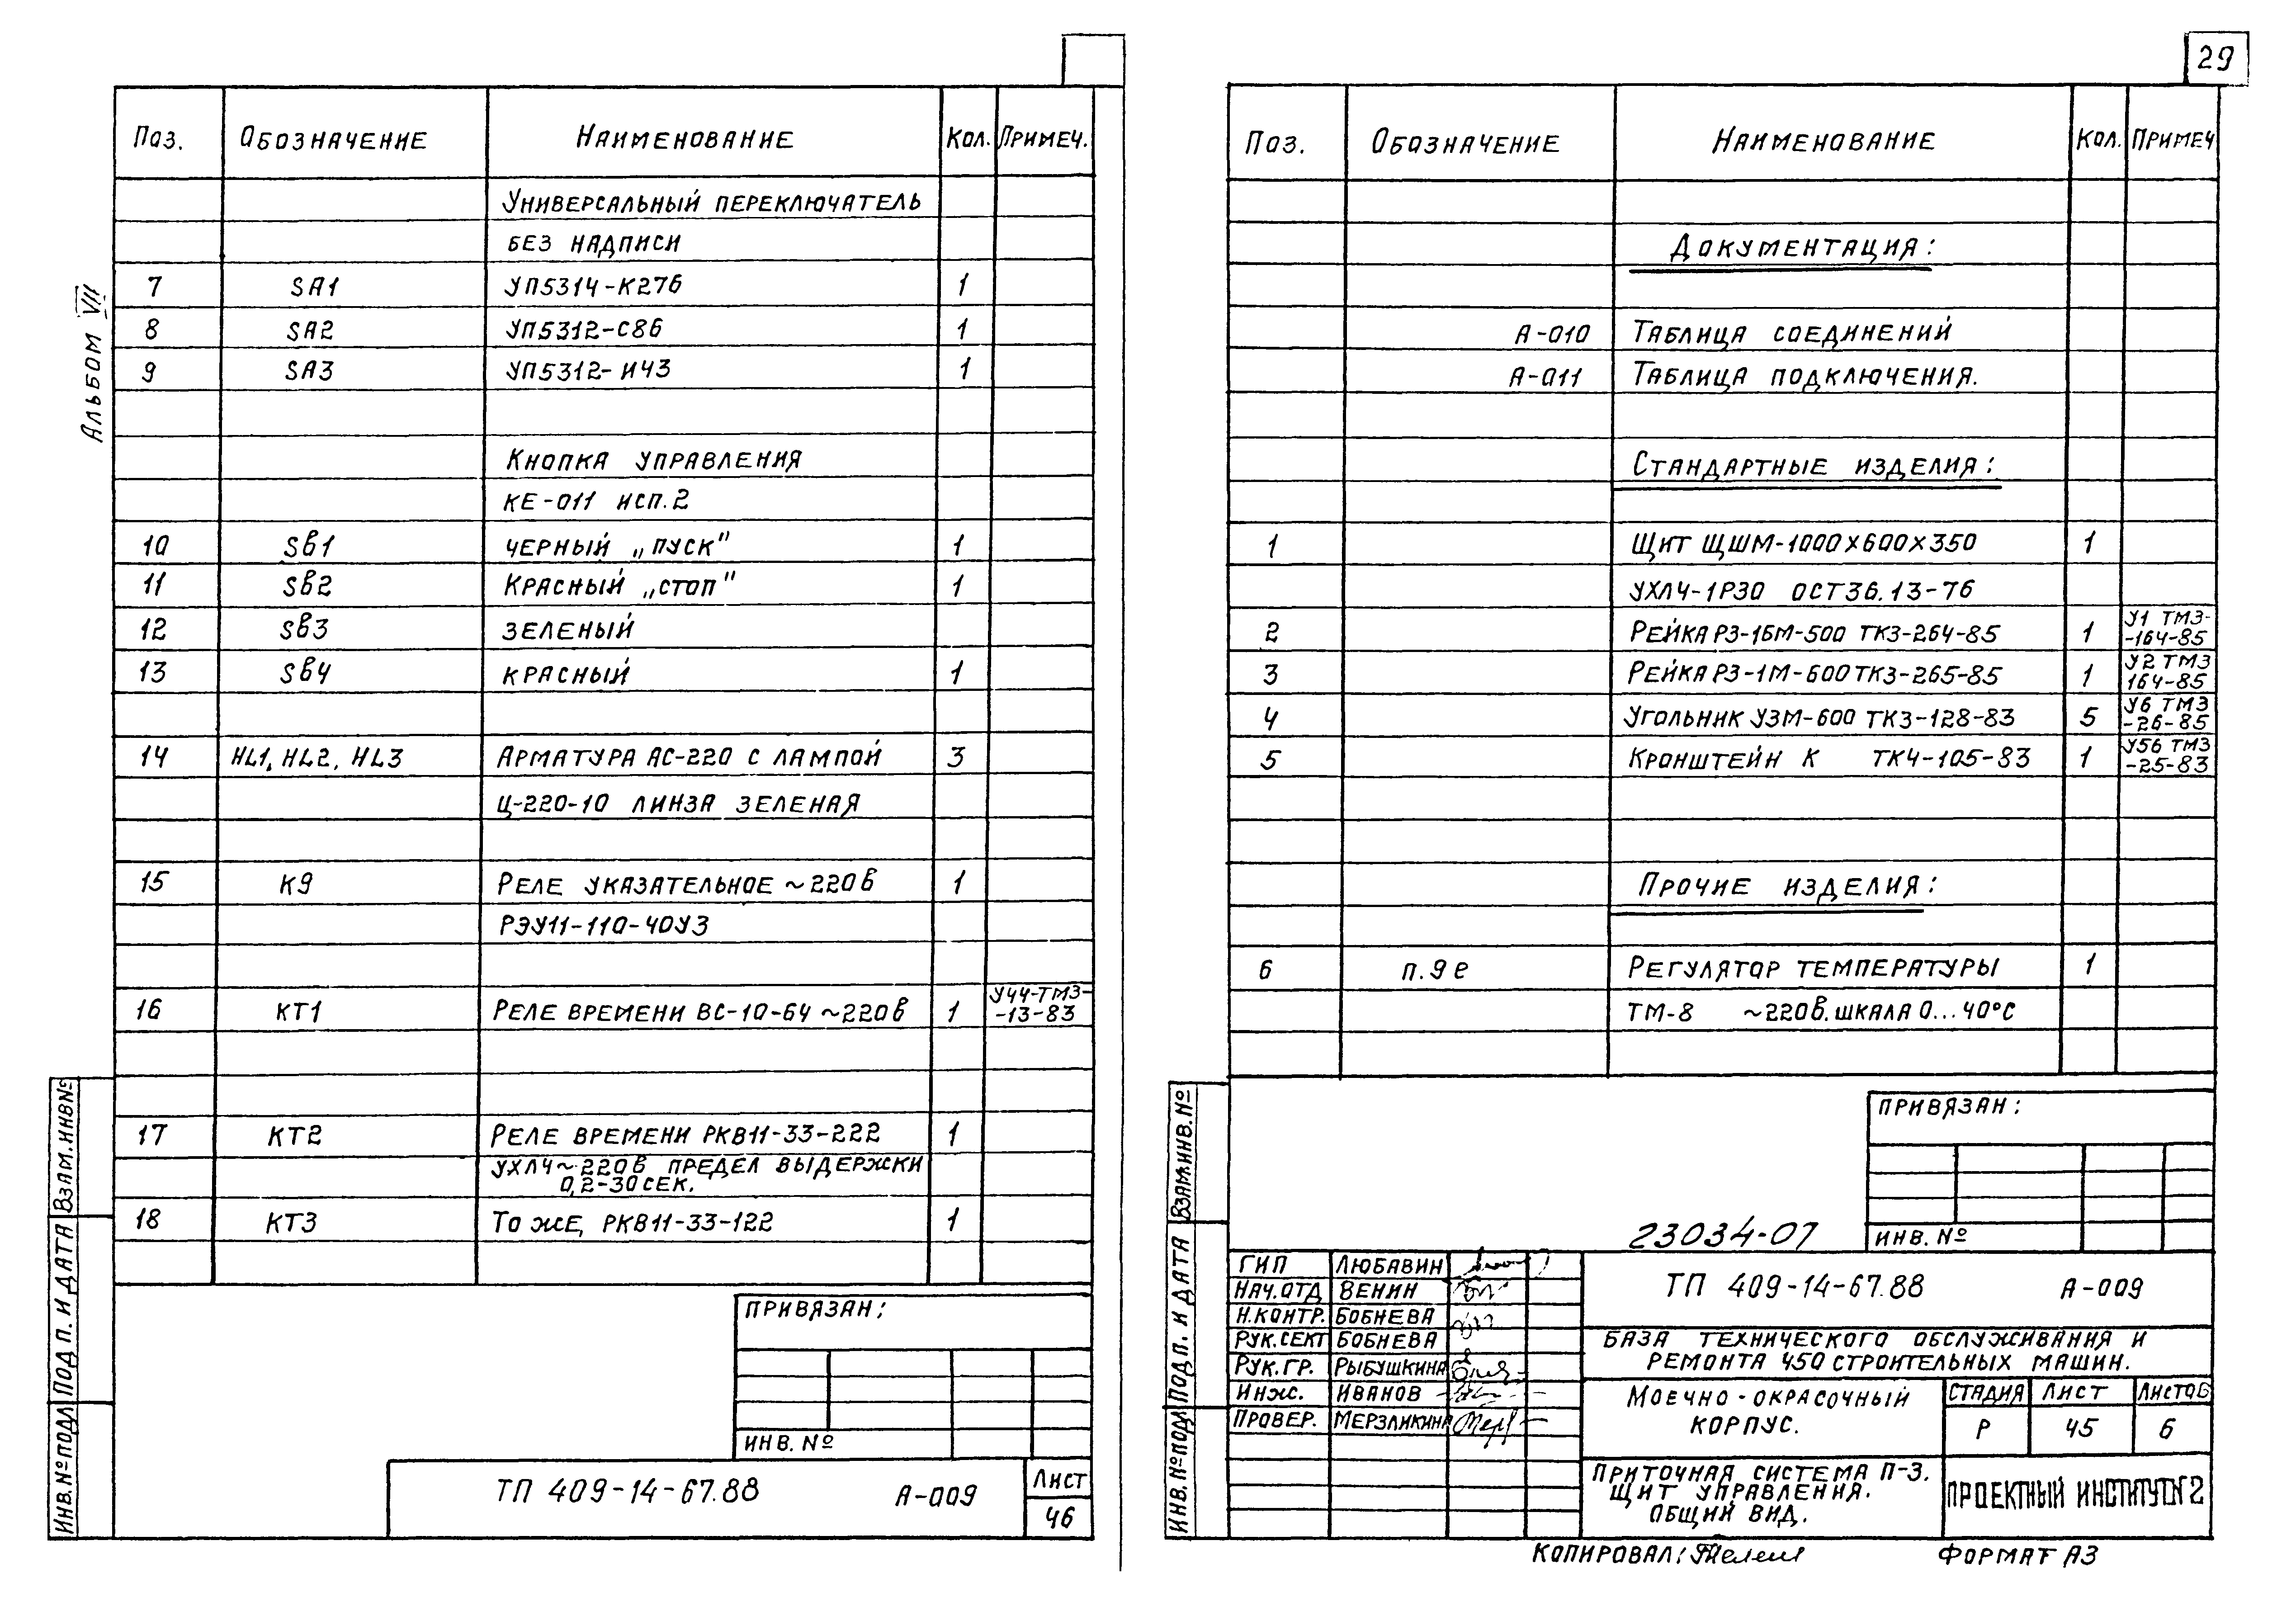 Альбом VII
Поз. Обозначение Наименование Кол. Примеч.
Универсальный переключатель
без надписи
7 SA1 УП5314-К276 1
8 SA2 УП5312-С86 1
9 SA3 УП5312-И43 1
Кнопка управления
КЕ-011 исп.2
10 SB1 черный „пуск" 1
11 SB2 красный „стоп" 1
12 SB3 зеленый
13 SB4 красный 1
14 HL1, HL2, HL3 Арматура АС-220 с лампой 3
Ц-220-10 линза зеленая
15 К9 Реле указательное ~220в 1
РЭУ11-110-40У3
16 КТ1 Реле времени ВС-10-64 ~220в 1 У44-ТМ3-
-13-83
17 КТ2 Реле времени РКВ11-33-222 1
УХЛ4~220в предел выдержки
0,2-30сек.
18 КТ3 То же, РКВ11-33-122 1
Привязан:
Инв. №
ТП 409-14-67.88 А-009
Лист
46
Инв.№подл Подп. и дата Взам.инв№
29
Поз. Обозначение Наименование Кол. Примеч
Документация:
А-010 Таблица соединений
А-011 Таблица подключения.
Стандартные изделия:
1 Щит ЩШМ-1000х600х350 1
УХЛ4-1Р30 ОСТ36.13-76
2 Рейка Р3-16М-500 ТК3-264-85 1 У1 ТМ3-
-164-85
3 Рейка Р3-1М-600 ТК3-265-85 1 У2 ТМ3
164-85
4 Угольник УЗМ-600 ТК3-128-83 5 У6 ТМ3
-26-85
5 Кронштейн К ТК4-105-83 1 У56 ТМ3
-25-83
Прочие изделия:
6 п.9е Регулятор температуры 1
ТМ-8 ~220в. шкала 0...40°С
Привязан:
Инв. №
23034-07
ГИП Любавин
Нач.отд Венин
Н.контр. Бобнева
Рук.сект Бобнева
Рук.гр. Рыбушкина
Инж. Иванов
Провер. Мерзликина
ТП 409-14-67.88 А-009
База технического обслуживания и
ремонта 450 строительных машин.
Моечно-окрасочный
корпус.
Стадия Лист Листов
Р 45 6
Приточная система П-3.
Щит управления.
Общий вид.
Проектный институт№2
Инв.№подл Подп. и дата Взам.инв.№
Копировал:
Формат А3